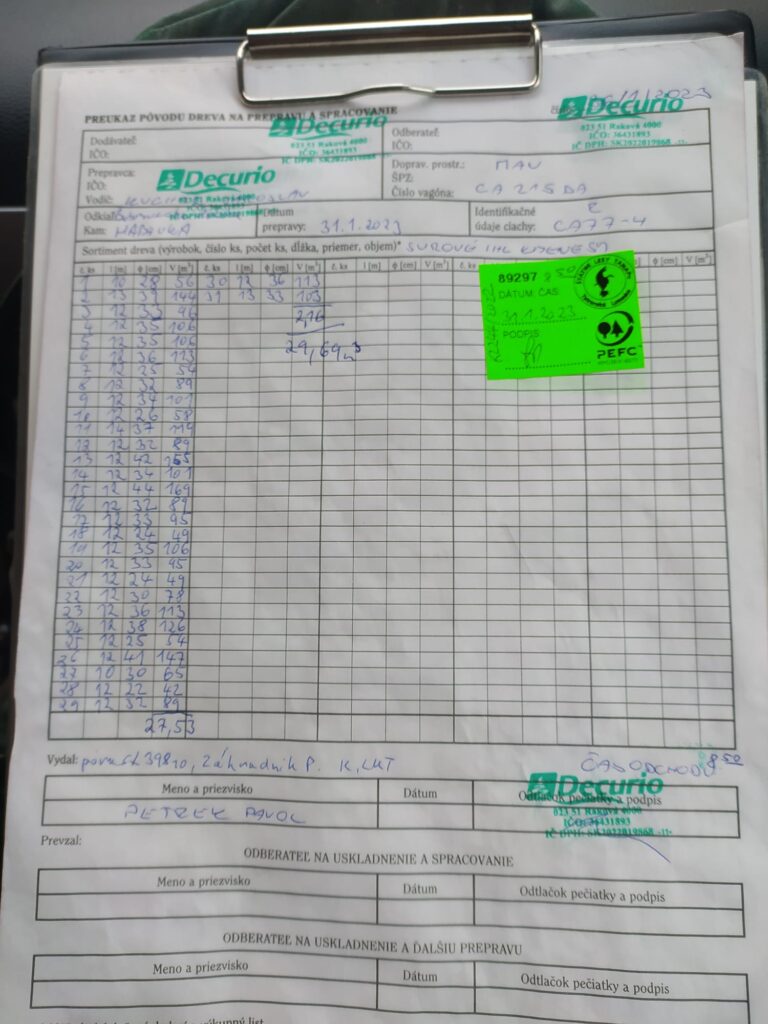 /1/2023
PREUKAZ PÔVODU DREVA NA PREPRAVU A SPRACOVANIE
Decurio
023 51 Raková 4000
IČO: 36431893
IČ DPH: SK2022019868 -11-
Decurio
023 51 Raková 4000
IČO: 36431893
IČ DPH: SK2022019868 -11-
Dodávateľ:
IČO:
Odberateľ:
IČO:
Prepravca:
IČO:
Vodič:
Decurio
Doprav. prostr.: MAN
ŠPZ:
Číslo vagóna: CA 215 DA
Odkiaľ:
Kam:
Dátum
prepravy: 31.1.2023
Identifikačné
údaje clachy: CA77-4
Sortiment dreva (výrobok, číslo ks, počet ks, dĺžka, priemer, objem)* SUROVÉ IHL KMENE
č. ks l [m] ϕ [cm] V [m³] č. ks l [m] ϕ [cm] V [m³] l [m] ϕ [cm] V [m³]
1 10 28 56 30 12 36 113
2 13 39 144 31 13 33 103
3 12 33 96 2,16
4 12 35 106
5 12 35 106 29,69 m³
6 12 36 113
7 12 25 54
8 12 32 89
9 12 34 101
10 12 26 58
11 14 37 119
12 12 32 89
13 12 42 155
14 12 34 101
15 12 44 169
16 12 32 89
17 12 33 95
18 12 24 49
19 12 35 106
20 12 33 95
21 12 24 49
22 12 30 78
23 12 36 113
24 12 38 126
25 12 25 54
26 12 41 147
27 10 30 65
28 12 22 42
29 12 32 89
27,53
89297 8 50
DÁTUM ČAS
31.1.2023
PODPIS
PEFC
Vydal: Záhradník P.
ČAS ODCHODU 8 50
Meno a priezvisko Dátum Odtlačok pečiatky a podpis
PETREK PAVOL
Decurio
023 51 Raková 4000
IČO: 36431893
IČ DPH: SK2022019868 -11-
Prevzal:
ODBERATEĽ NA USKLADNENIE A SPRACOVANIE
Meno a priezvisko Dátum Odtlačok pečiatky a podpis
ODBERATEĽ NA USKLADNENIE A ĎALŠIU PREPRAVU
Meno a priezvisko Dátum Odtlačok pečiatky a podpis